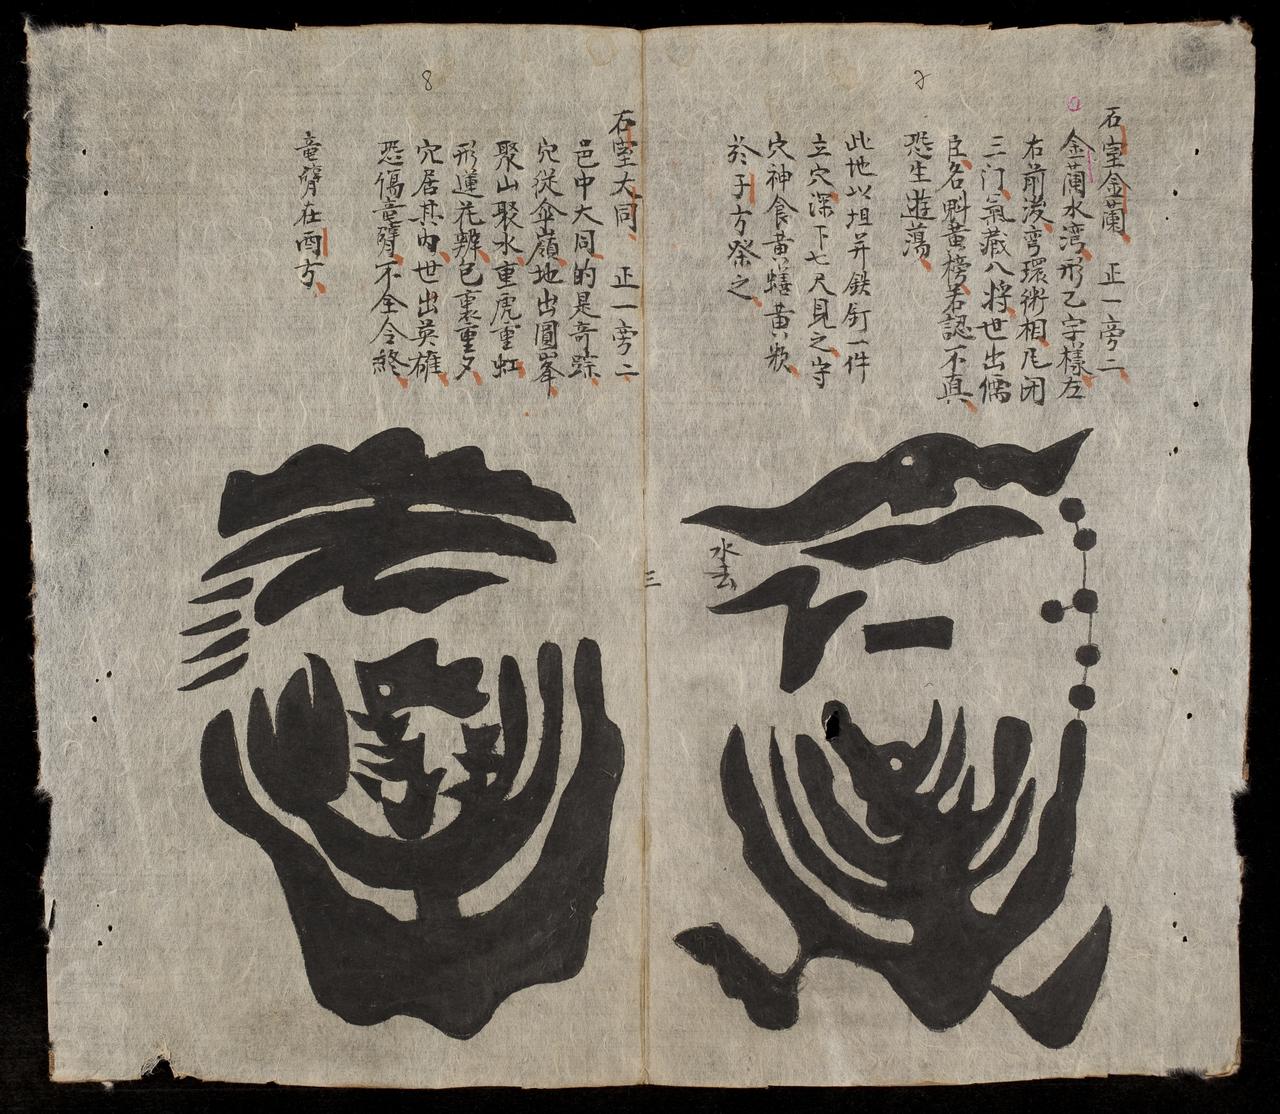 石室金蘭　正一旁二
金蘭水湾形乙字樣左
右前後弯環術相凡闭
三门氣藏八將世出儒
臣名魁黄榜若認不真
恐生遊蕩
此地以坦并鉄釘一件
立穴深下七尺見之守
穴神食黄蟮黄
於子方祭之
水去
7
石室大同　正一旁二
邑中大同的是奇踪
穴從傘嶺地出圓峯
聚山聚水重虎重虹
形蓮花辦包裹重夕
穴居其内世出英雄
恐傷竜臂不全令終
竜臂在酉方
8
三